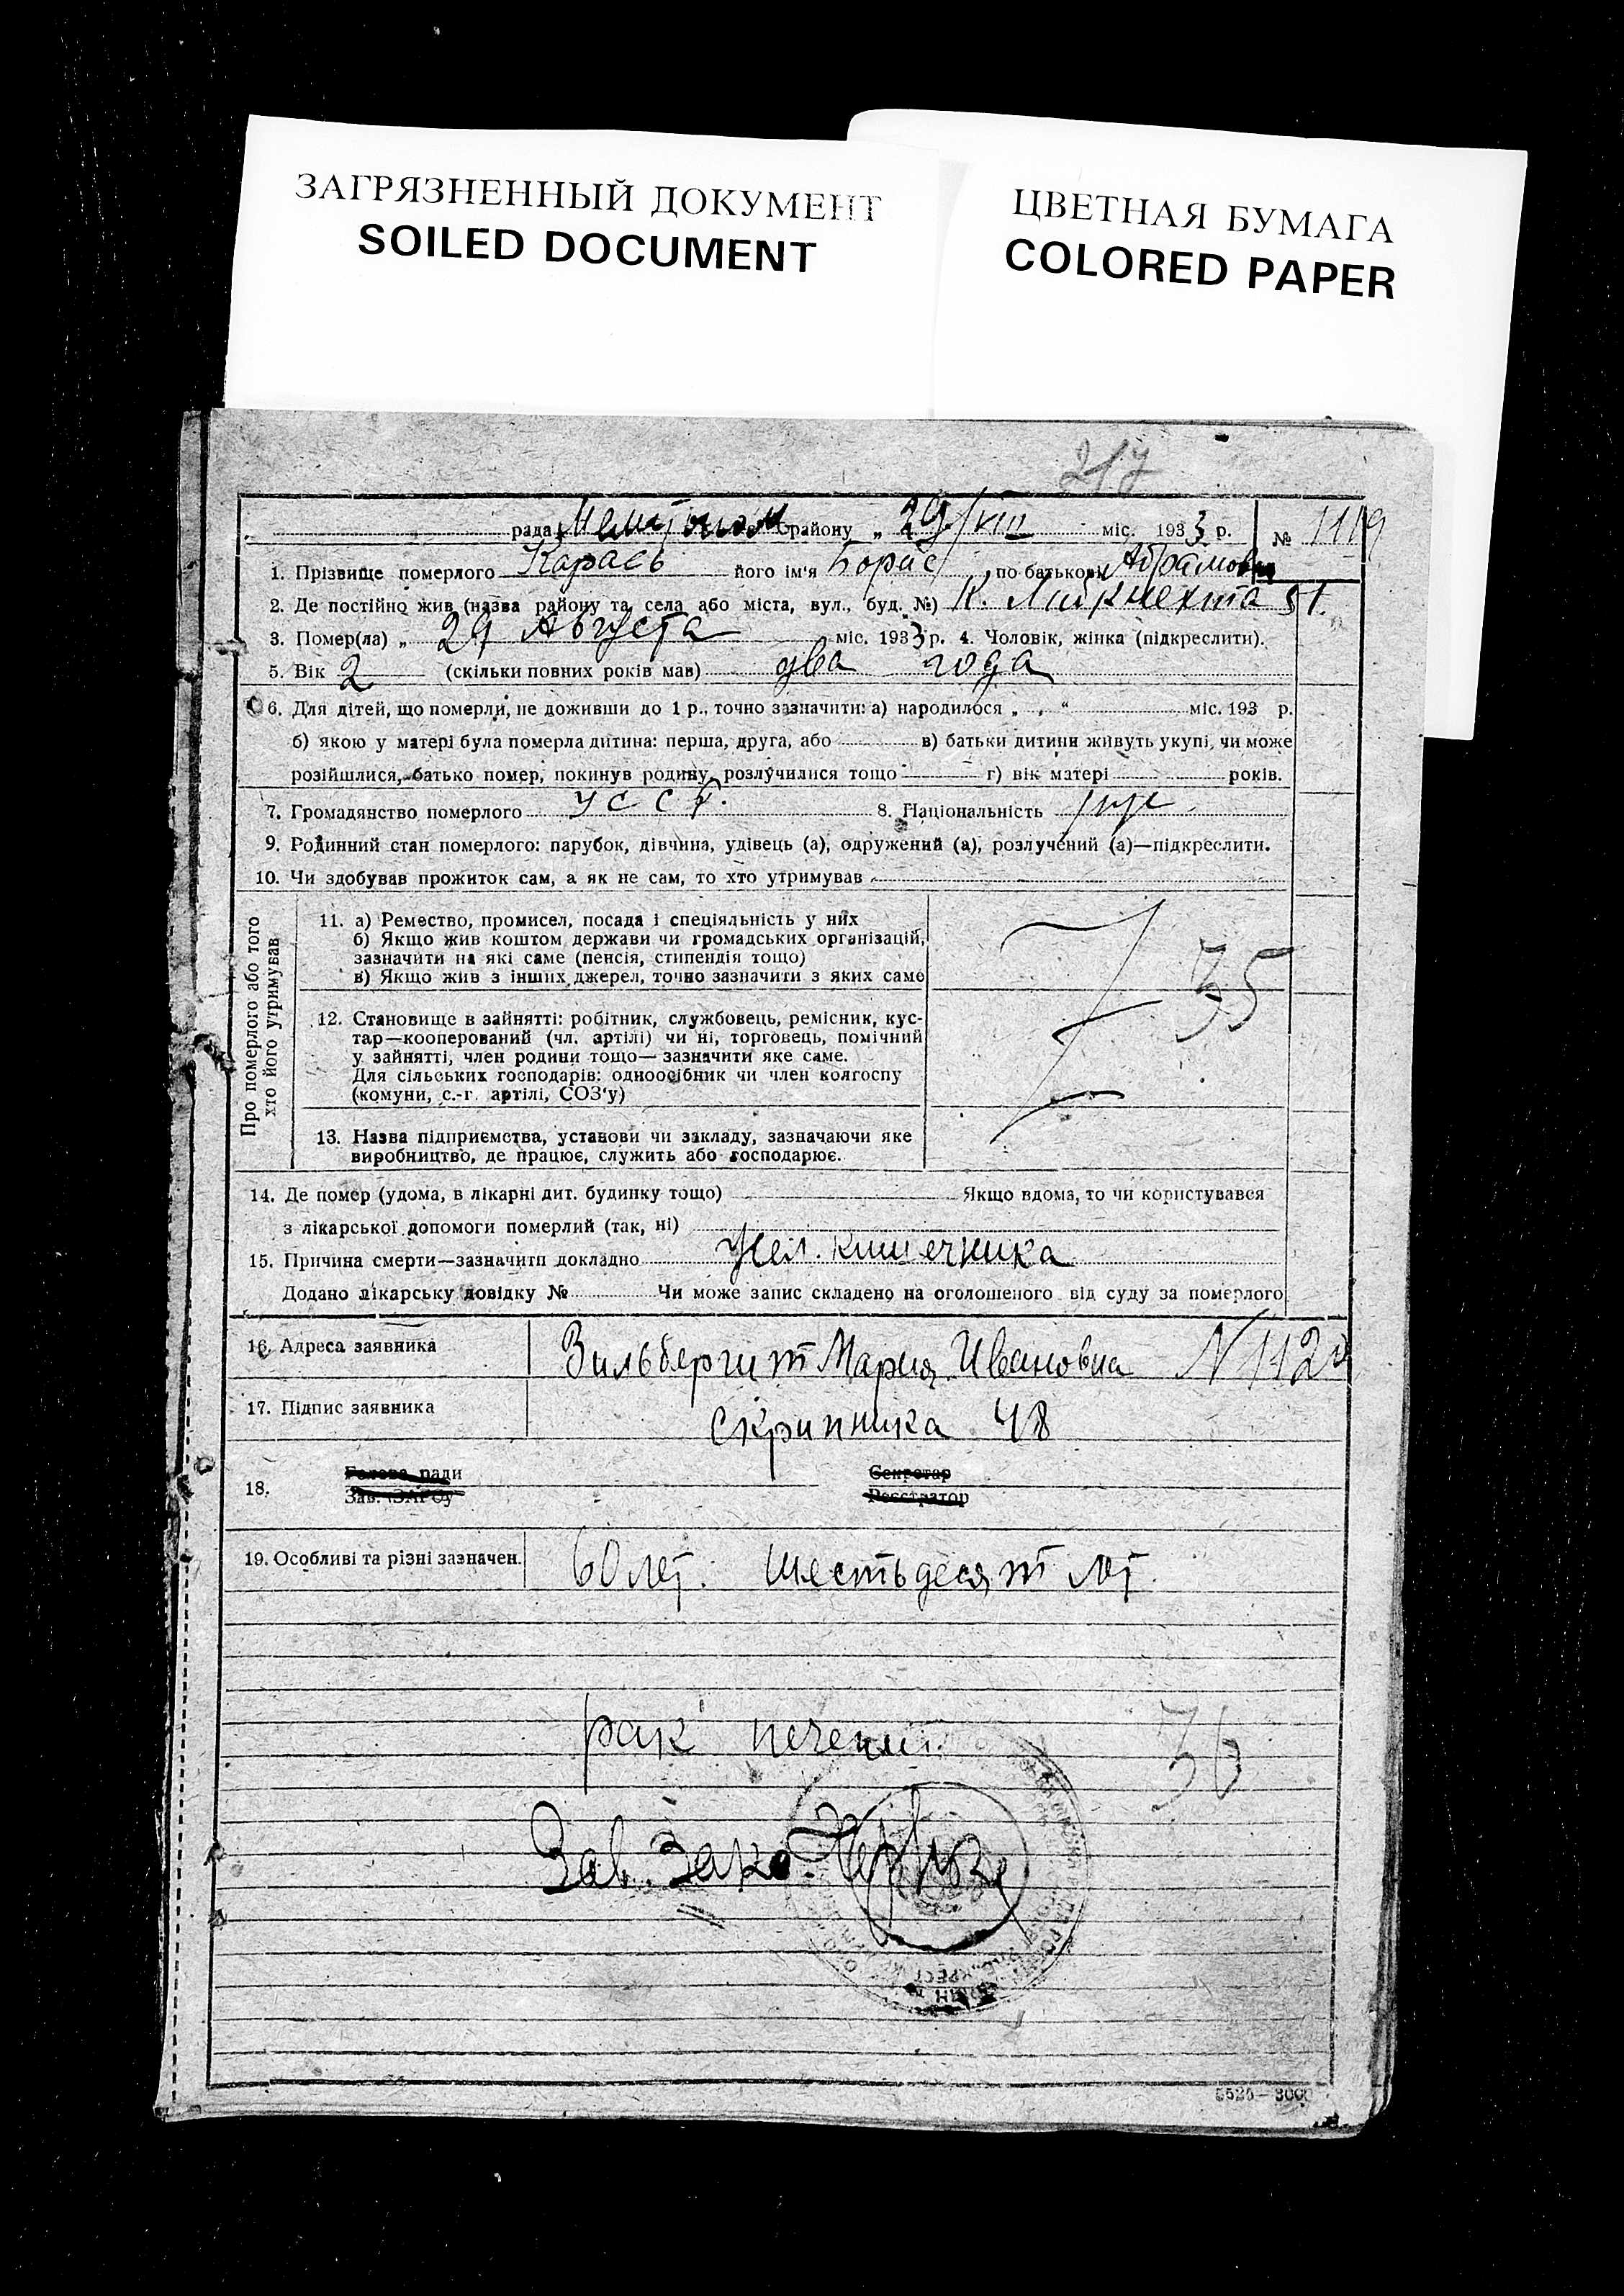 ЗАГРЯЗНЕННЫЙ ДОКУМЕНТ
SOILED DOCUMENT
ЦВЕТНАЯ БУМАГА
COLORED PAPER
217
рада району „ 29/VIII міс. 1933 р. № 1119
1. Прізвище померлого Карась його ім'я Борис по батькові Абрамович
2. Де постійно жив (назва району та села або міста, вул., буд. №) К. Либкнехта 51.
3. Помер(ла) „ 29 Августа міс. 1933 р. 4. Чоловік, жінка (підкреслити).
5. Вік 2 (скільки повних років мав) два года
6. Для дітей, що померли, не доживши до 1 р., точно зазначити: а) народилося „ “ міс. 193 р.
б) якою у матері була померла дитина: перша, друга, або в) батьки дитини живуть укупі, чи може
розійшлися, батько помер, покинув родину, розлучилися тощо г) вік матері років.
7. Громадянство померлого УССР. 8. Національність
9. Родинний стан померлого: парубок, дівчина, удівець (а), одружений (а), розлучений (а)—підкреслити.
10. Чи здобував прожиток сам, а як не сам, то хто утримував
Про померлого або того
хто його утримував
11. а) Ремество, промисел, посада і спеціяльність у них
б) Якщо жив коштом держави чи громадських організацій,
зазначити на які саме (пенсія, стипендія тощо)
в) Якщо жив з інших джерел, точно зазначити з яких саме
35
12. Становище в зайнятті: робітник, службовець, ремісник, кус-
тар—кооперований (чл. артілі) чи ні, торговець, помічний
у зайнятті, член родини тощо— зазначити яке саме.
Для сільських господарів: одноосібник чи член колгоспу
(комуни, с.-г. артілі, СОЗ'у)
13. Назва підприємства, установи чи закладу, зазначаючи яке
виробництво, де працює, служить або господарює.
14. Де помер (удома, в лікарні дит. будинку тощо) Якщо вдома, то чи користувався
з лікарської допомоги померлий (так, ні)
15. Причина смерти—зазначити докладно кишечника
Додано лікарську довідку № Чи може запис складено на оголошеного від суду за померлого
16. Адреса заявника Мария Ивановна N 1120
17. Підпис заявника Скрипника 48
18. Голова ради Секретар
Зав. ЗАГСу Реєстратор
19. Особливі та різні зазначен. 60 лет. шестьдесят лет.
рак печени
36
Зав. Загс
5525—3000